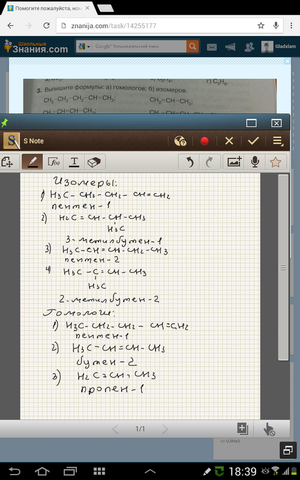 Помогите пожалуйста, нов
znanija.com/task/14255177
Школьные
Знания.com
Gladxlam
3. Выпишите формулы: а) гомологов; б) изомеров.
S Note
Изомеры:
1) H₃C – CH₂ – CH₂ – CH = CH₂
пентен-1
2) H₂C = CH – CH – CH₃
H₃C
3-метилбутен-1
3) H₃C – CH = CH – CH₂ – CH₃
пентен-2
4) H₃C – C = CH – CH₃
H₃C
2-метилбутен-2
Гомологи:
1) H₃C – CH₂ – CH₂ – CH = CH₂
пентен-1
2) H₃C – CH = CH – CH₃
бутен-2
3) H₂C = CH – CH₃
пропен-1
1/1
18:39